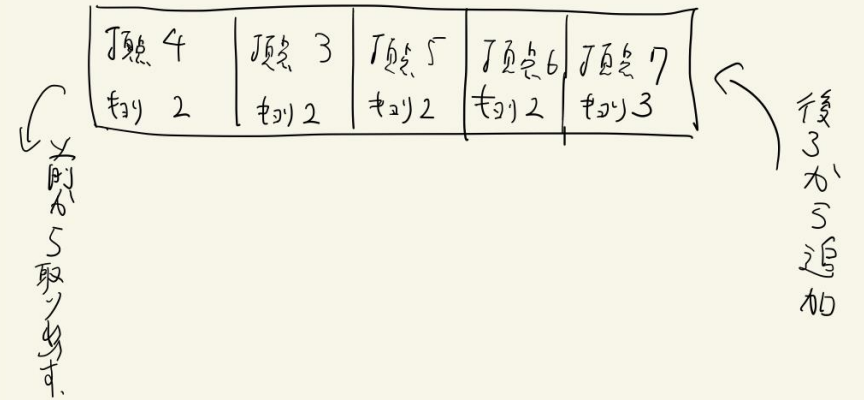 頂点 4
キョリ 2
頂点 3
キョリ 2
頂点 5
キョリ 2
頂点 6
キョリ 2
頂点 7
キョリ 3
前から取り出す.
後ろから追加